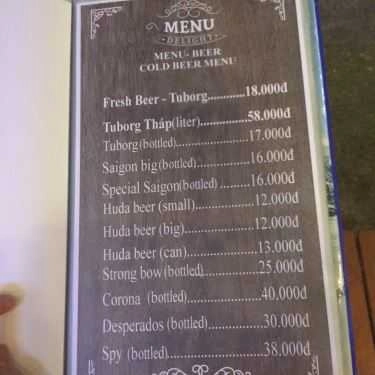 MENU
DELIGHT
MENU- BEER
COLD BEER MENU
Fresh Beer - Tuborg............18.000đ
Tuborg Tháp(liter)..................58.000đ
Tuborg(bottled)........................17.000đ
Saigon big(bottled)...................16.000đ
Special Saigon(bottled) ........16.000đ
Huda beer (small)..................12.000đ
Huda beer (big)......................12.000đ
Huda beer (can)......................13.000đ
Strong bow (bottled)..............25.000đ
Corona (bottled)..................40.000đ
Desperados (bottled)..............30.000đ
Spy (bottled)........................38.000đ